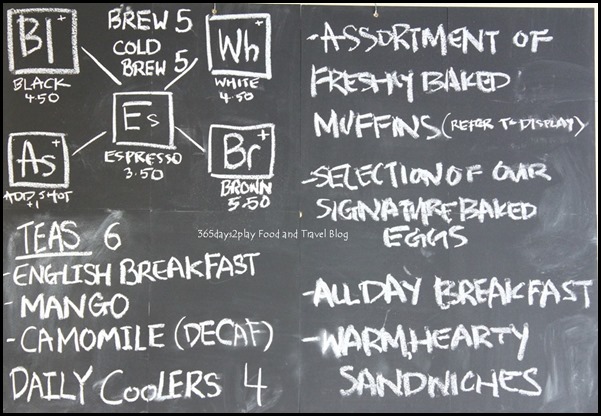 Bl+
BLACK
4.50
BREW 5
COLD
BREW 5
Wh+
WHITE
4.50
Es
ESPRESSO
3.50
As+
ADD SHOT
+1
Br+
BROWN
5.50
TEAS 6
-ENGLISH BREAKFAST
-MANGO
-CAMOMILE (DECAF)
DAILY COOLERS 4
-ASSORTMENT OF
FRESHLY BAKED
MUFFINS (REFER TO DISPLAY)
-SELECTION OF OUR
SIGNATURE BAKED
EGGS
-ALL DAY BREAKFAST
-WARM, HEARTY
SANDWICHES
365days2play Food and Travel Blog